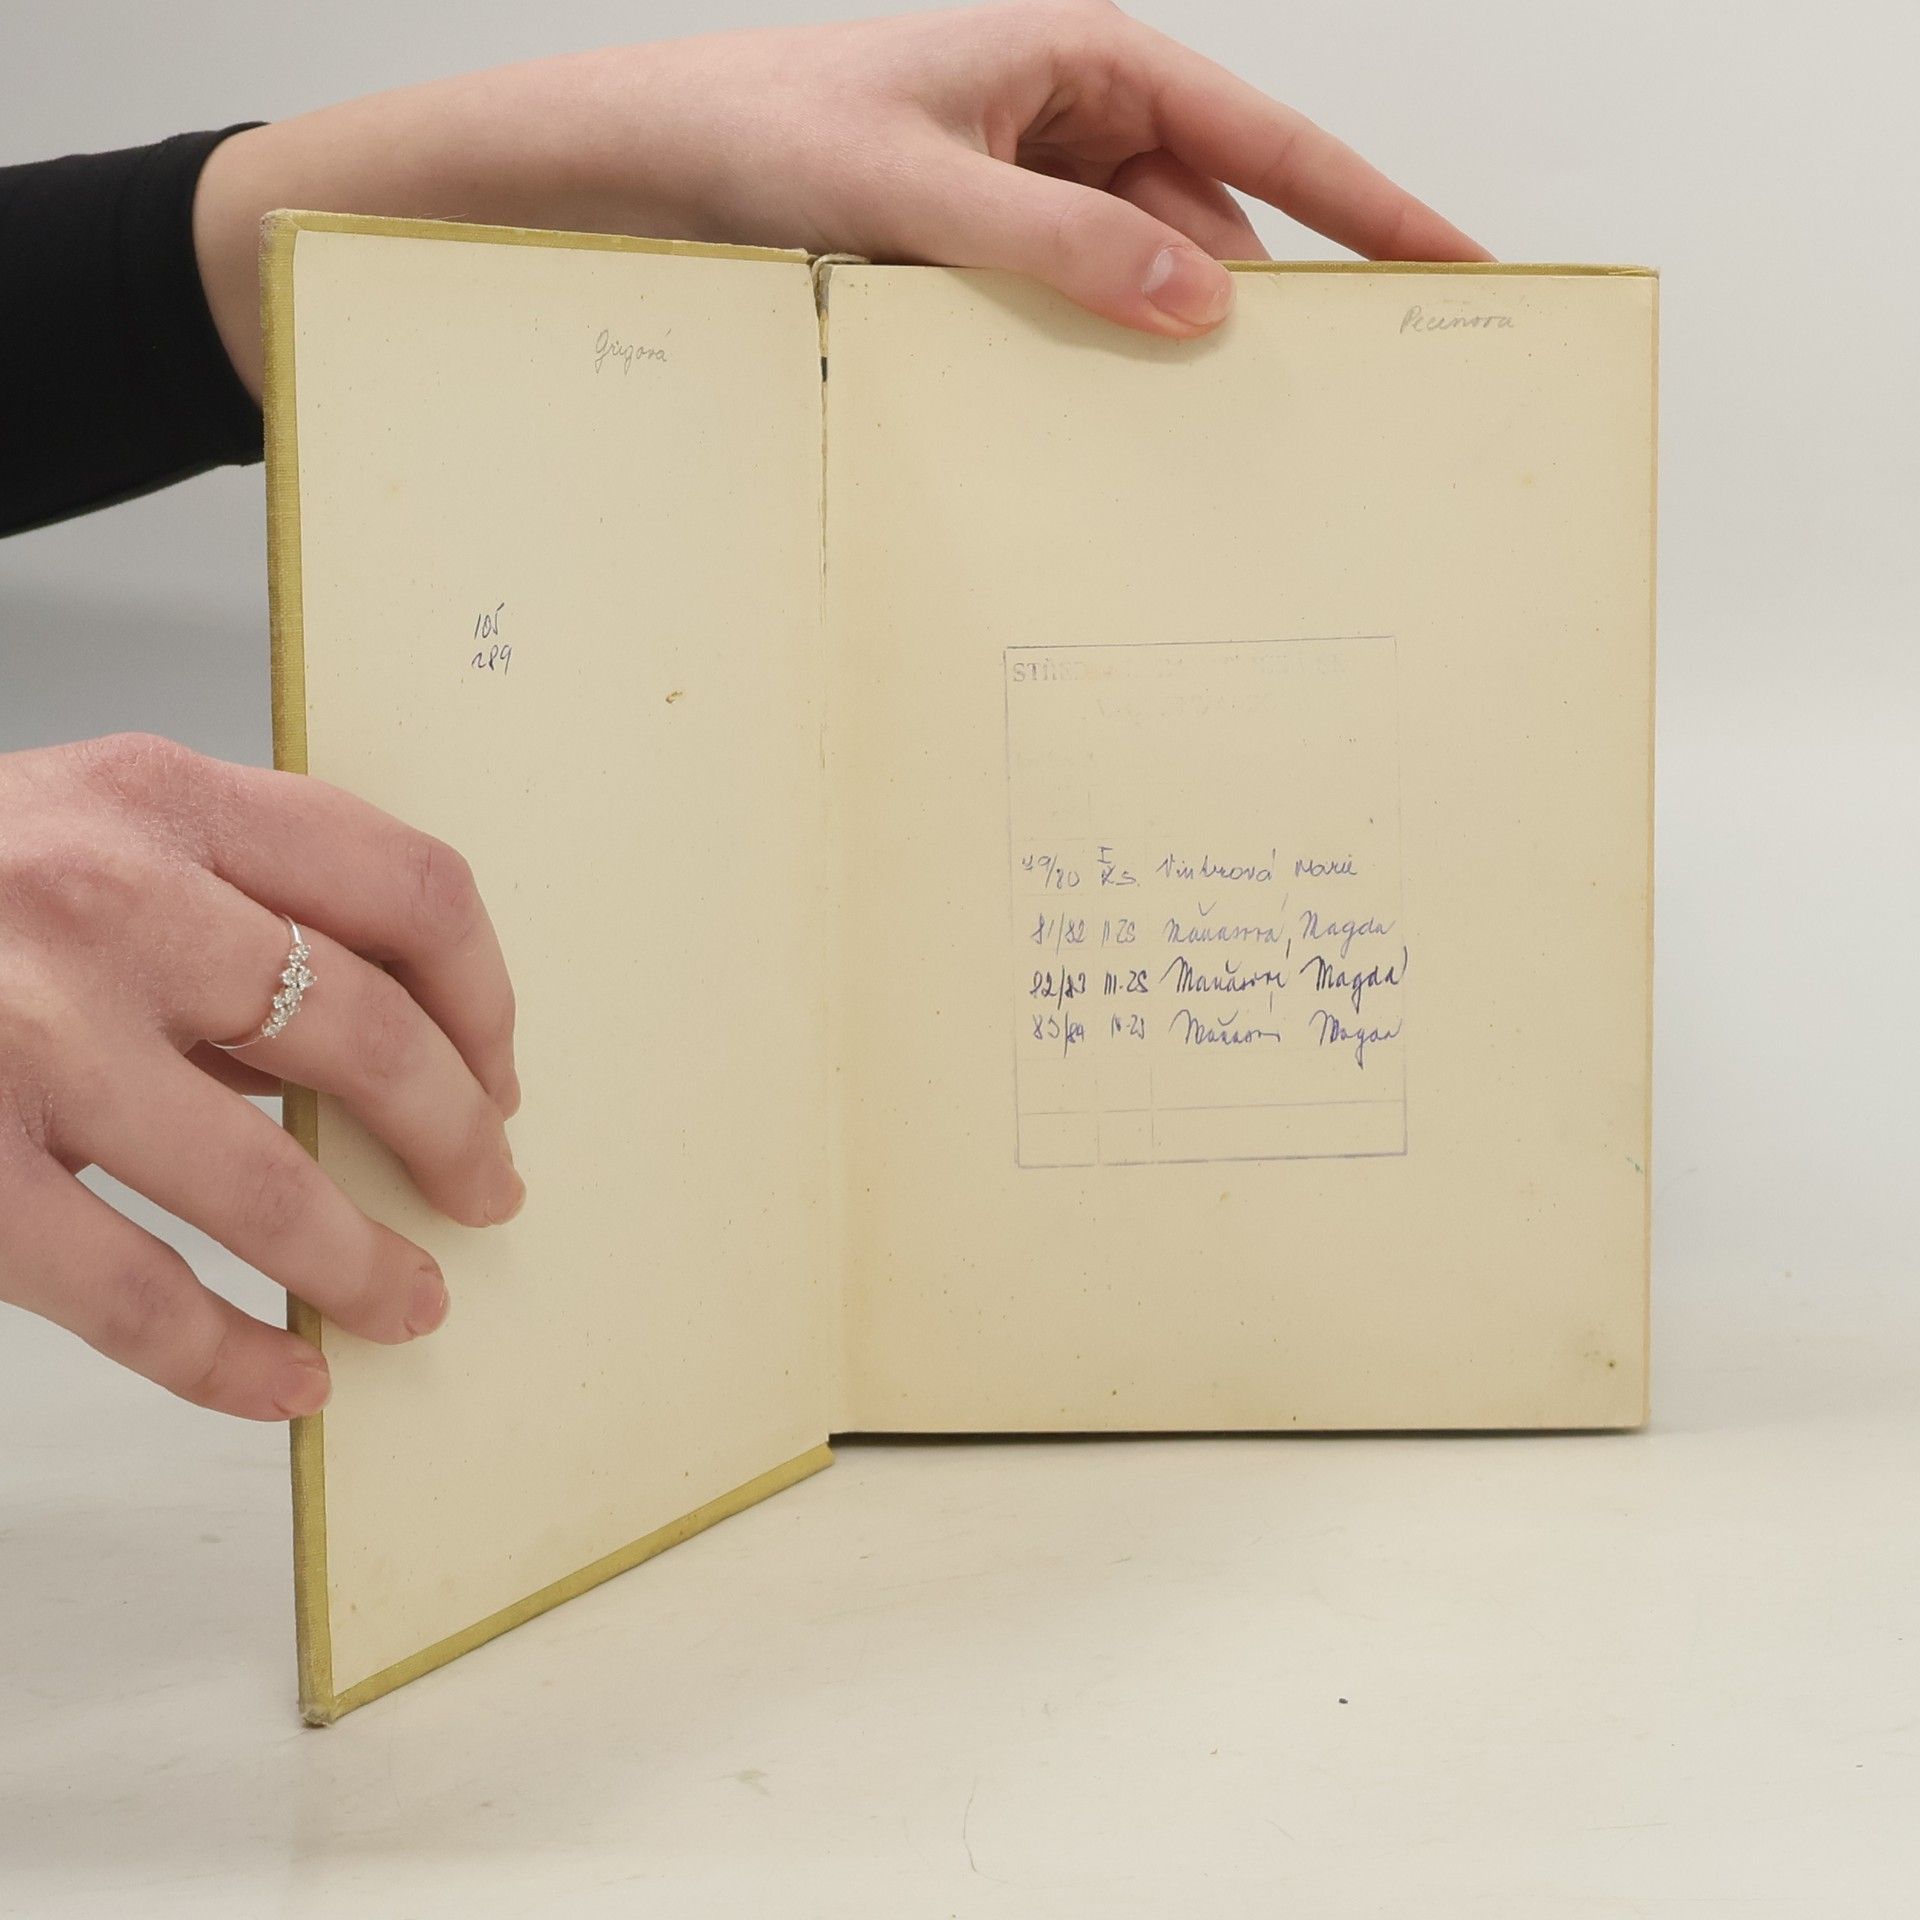 Grigová
105
289
Pecenová
79/80 I ZS. Vintrová Marie
81/82 II ZS Maňasová, Magda
82/83 III. ZS Maňasová Magda
83/84 IV. ZS Maňasová Magda